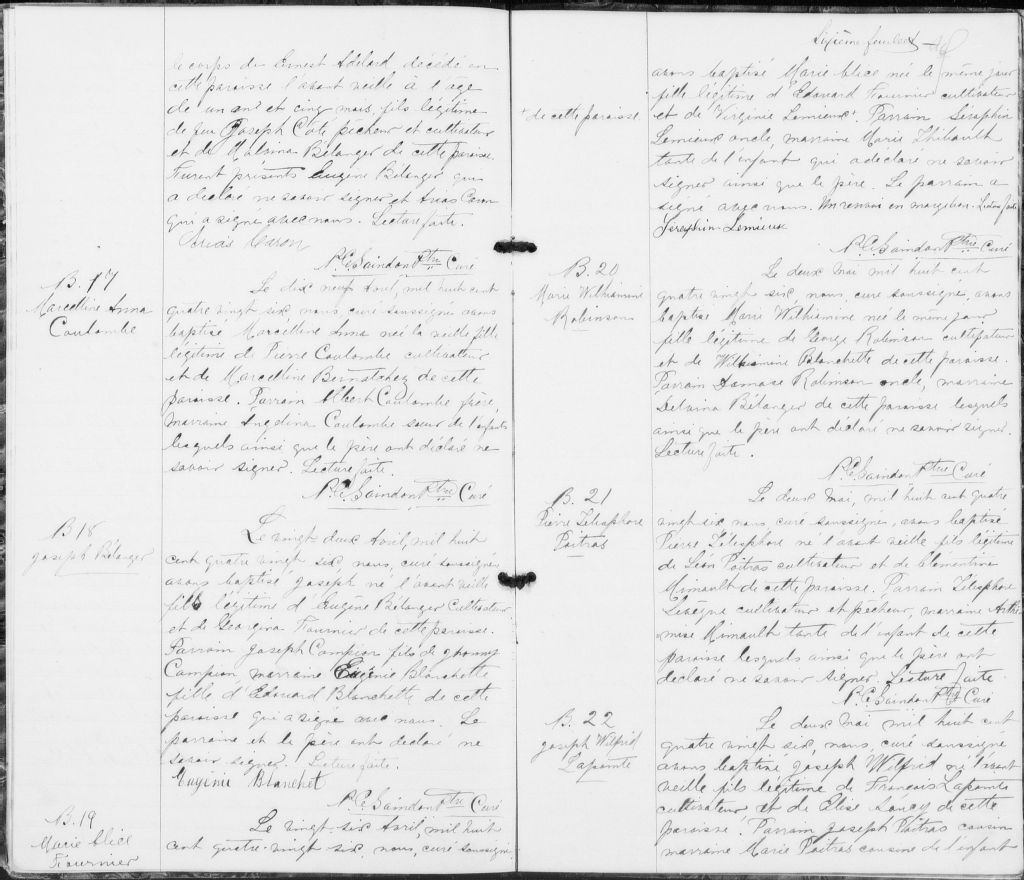 le corps de Ernest Adélard décédé en
cette paroisse l'avant veille à l'âge
de un an et cinq mois, fils légitime
de feu Joseph Coté pêcheur et cultivateur
et de Malvina Bélanger de cette paroisse.
Furent présents Eugène Bélanger qui
a déclaré ne savoir signer et Arias Caron
qui a signé avec nous. Lecture faite.
Arias Caron
Saindon Ptre Curé
B. 17
Marcelline Anna
Coulombe
Le dix neuf Avril, mil huit cent
quatre vingt six, nous, curé soussigné avons
baptisé Marcelline Anna née la veille fille
légitime de Pierre Coulombe cultivateur
et de Marcelline Bernatchez de cette
paroisse. Parrain Albert Coulombe frère,
marraine Angelina Coulombe sœur de l'enfant
lesquels ainsi que le père ont déclaré ne
savoir signer. Lecture faite.
Saindon Ptre Curé
B 18
Joseph Bélanger
Le vingt deux Avril, mil huit
cent quatre vingt six nous, curé soussigné
avons baptisé Joseph né l'avant veille
fils légitime d'Eugène Bélanger Cultivateur
et de Georgina Fournier de cette paroisse.
Parrain Joseph Campion fils de Johnny
Campion, marraine Eugénie Blanchette
fille d'Edouard Blanchette de cette
paroisse qui a signé avec nous. Le
parraine et le père ont déclaré ne
savoir signer. Lecture faite.
Eugénie Blanchet
Saindon Ptre Curé
B. 19
Marie Alice
Fournier
Le vingt-six Avril, mil huit
cent quatre-vingt six, nous, curé soussigné
Sixième feuillet
+ de cette paroisse.
avons baptisé Marie Alice née le même jour
fille légitime d'Edouard Fournier cultivateur
et de Virginie Lemieux+. Parrain Séraphin
Lemieux oncle, marraine Marie Thibault
tante de l'enfant qui a déclaré ne savoir
signer ainsi que le père. Le parrain a
signé avec nous. Un renvoi en marge bon. Lecture faite
Seraphin Lemieux
Saindon Ptre Curé
B. 20
Marie Wilhiamine
Robinson
Le deux Mai mil huit cent
quatre vingt six, nous, curé soussigné, avons
baptisé Marie Wilhiamine née le même jour
fille légitime de George Robinson cultivateur
et de Blanchette de cette paroisse.
Parrain Damase Robinson oncle, marraine
Delvina Bélanger de cette paroisse lesquels
ainsi que le père ont déclaré ne savoir signer.
Lecture faite.
Saindon Ptre Curé
B. 21
Pierre Télésphore
Poitras
Le deux Mai, mil huit cent quatre
vingt six nous, curé soussigné, avons baptisé
Pierre Télésphore né l'avant veille fils légitime
de Léon Poitras cultivateur et de Clémentine
Mimault de cette paroisse. Parrain Télésphore
cultivateur et pêcheur, marraine Arthé-
mise Mimault tante de l'enfant de cette
paroisse lesquels ainsi que le père ont
déclaré ne savoir signer. Lecture faite.
Saindon Ptre Curé
B. 22
Joseph Wilfrid
Lapointe
Le deux Mai mil huit cent
quatre vingt six, nous, curé soussigné
avons baptisé Joseph Wilfrid né l'avant
veille fils légitime de François Lapointe
cultivateur et de Elise de cette
paroisse. Parrain Joseph Poitras cousin
marraine Marie Poitras cousine de l'enfant